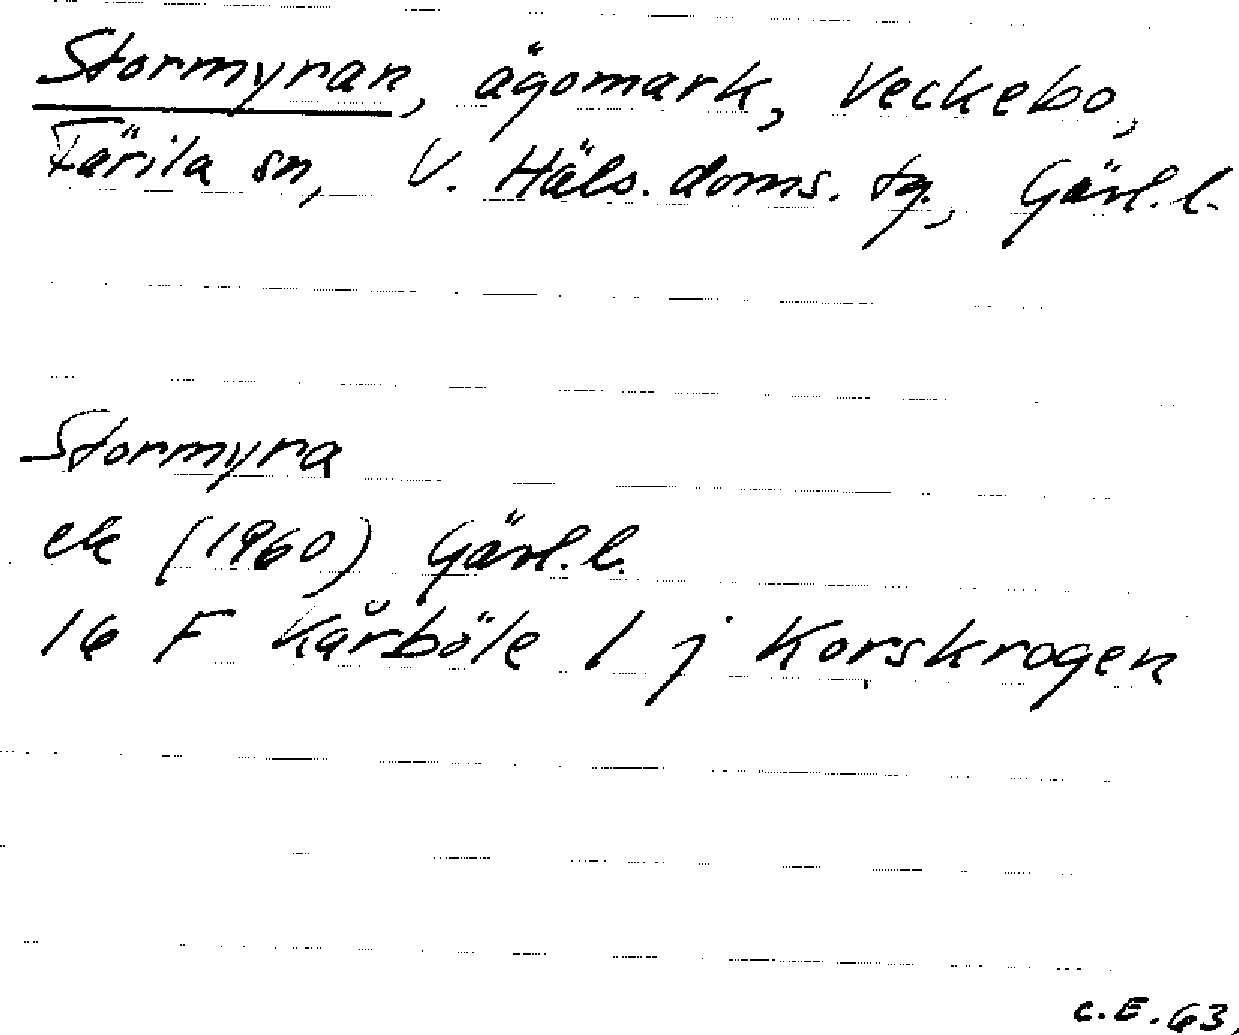 Stormyran, ägomark, Veckebo,
Färila sn, V. Häls. doms. tg., Gävl. l.
Stormyra
ek (1960) Gävl. l.
16 F Kårböle 1 j Korskrogen
C. E. 63.